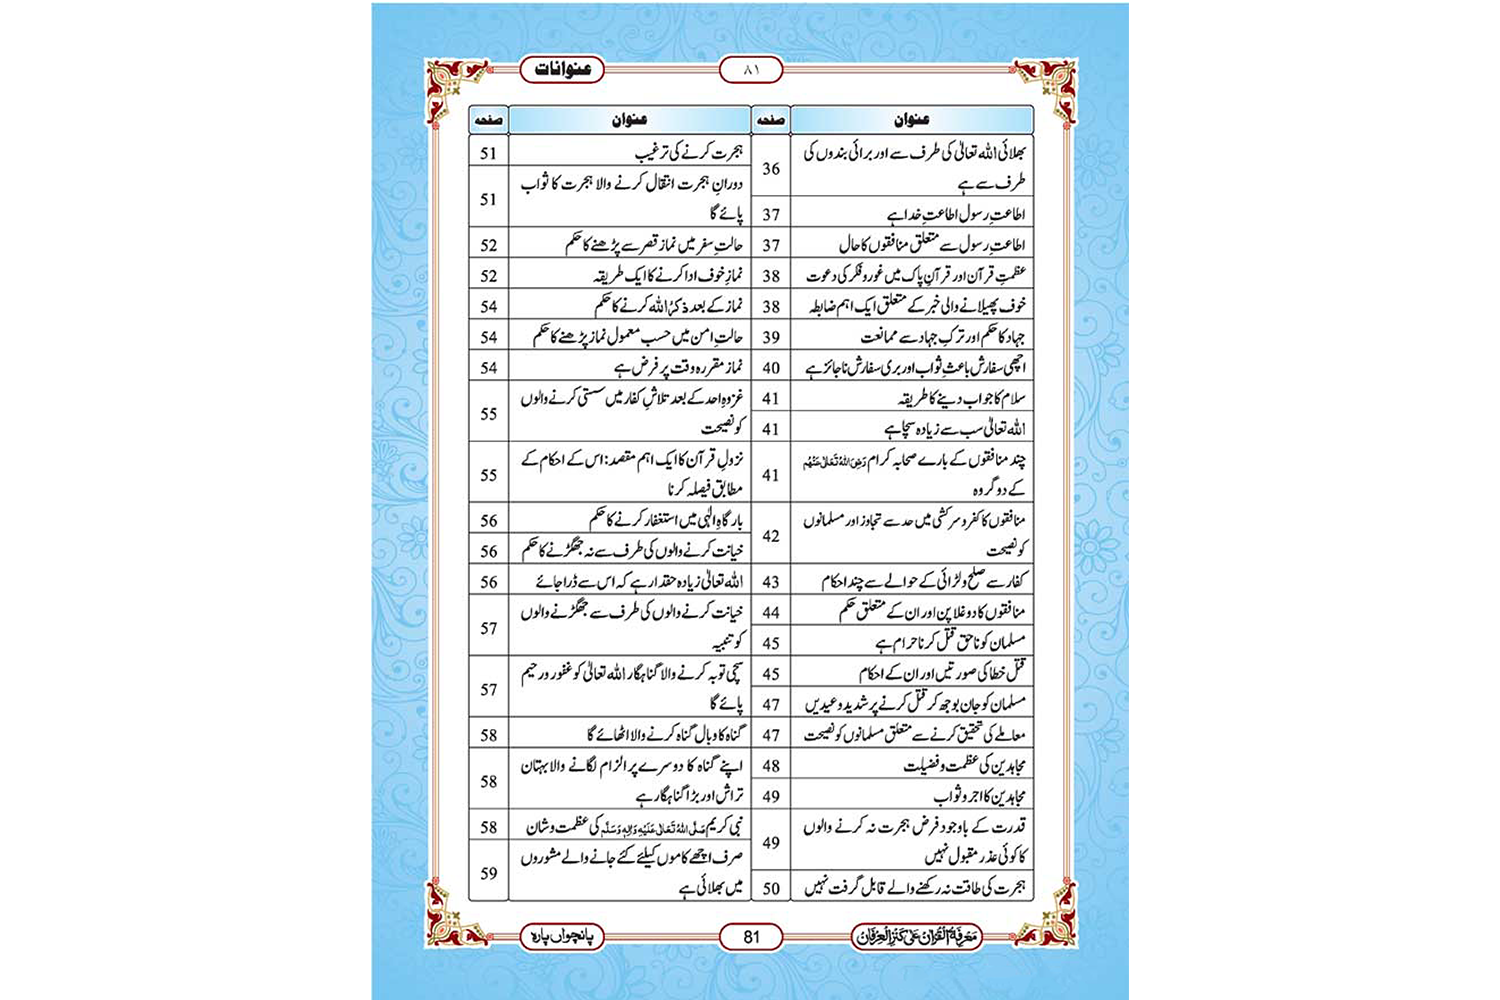 عنوانات
۸۱
عنوان صفحہ
بھلائی اللہ تعالیٰ کی طرف سے اور برائی بندوں کی
طرف سے ہے 36
اطاعتِ رسول اطاعتِ خدا ہے 37
اطاعتِ رسول سے متعلق منافقوں کا حال 37
عظمتِ قرآن اور قرآنِ پاک میں غور و فکر کی دعوت 38
خوف پھیلانے والی خبر کے متعلق ایک اہم ضابطہ 38
جہاد کا حکم اور ترکِ جہاد سے ممانعت 39
اچھی سفارش باعثِ ثواب اور بری سفارش ناجائز ہے 40
سلام کا جواب دینے کا طریقہ 41
اللہ تعالیٰ سب سے زیادہ سچا ہے 41
چند منافقوں کے بارے صحابہ کرام رَضِیَ اللہُ تَعَالٰی عَنْہُم
کے دو گروہ 41
منافقوں کا کفر و سرکشی میں حد سے تجاوز اور مسلمانوں
کو نصیحت 42
کفار سے صلح و لڑائی کے حوالے سے چند احکام 43
منافقوں کا دوغلا پن اور ان کے متعلق حکم 44
مسلمان کو ناحق قتل کرنا حرام ہے 45
قتلِ خطا کی صورتیں اور ان کے احکام 45
مسلمان کو جان بوجھ کر قتل کرنے پر شدید وعیدیں 47
معاملے کی تحقیق کرنے سے متعلق مسلمانوں کو نصیحت 47
مجاہدین کی عظمت و فضیلت 48
مجاہدین کا اجر و ثواب 49
قدرت کے باوجود فرض ہجرت نہ کرنے والوں
کا کوئی عذر مقبول نہیں 49
ہجرت کی طاقت نہ رکھنے والے قابلِ گرفت نہیں 50
عنوان صفحہ
ہجرت کرنے کی ترغیب 51
دورانِ ہجرت انتقال کرنے والا ہجرت کا ثواب
پائے گا 51
حالتِ سفر میں نماز قصر سے پڑھنے کا حکم 52
نمازِ خوف ادا کرنے کا ایک طریقہ 52
نماز کے بعد ذکرُ اللہ کرنے کا حکم 54
حالتِ امن میں حسبِ معمول نماز پڑھنے کا حکم 54
نماز مقررہ وقت پر فرض ہے 54
غزوۂ احد کے بعد تلاشِ کفار میں سستی کرنے والوں
کو نصیحت 55
نزولِ قرآن کا ایک اہم مقصد: اس کے احکام کے
مطابق فیصلہ کرنا 55
بارگاہِ الٰہی میں استغفار کرنے کا حکم 56
خیانت کرنے والوں کی طرف سے نہ جھگڑنے کا حکم 56
اللہ تعالیٰ زیادہ حقدار ہے کہ اس سے ڈرا جائے 56
خیانت کرنے والوں کی طرف سے جھگڑنے والوں
کو تنبیہ 57
سچی توبہ کرنے والا گناہگار اللہ تعالیٰ کو غفور و رحیم
پائے گا 57
گناہ کا وبال گناہ کرنے والا اٹھائے گا 58
اپنے گناہ کا دوسرے پر الزام لگانے والا بہتان
تراش اور بڑا گناہگار ہے 58
نبی کریم صَلَّی اللہُ تَعَالٰی عَلَیْہِ وَاٰلِہٖ وَسَلَّم کی عظمت و شان 58
صرف اچھے کاموں کیلئے کئے جانے والے مشوروں
میں بھلائی ہے 59
مَعْرِفَۃُ الْقُرْاٰن عَلٰی کَنْزِ الْعِرْفَان
81
پانچواں پارہ